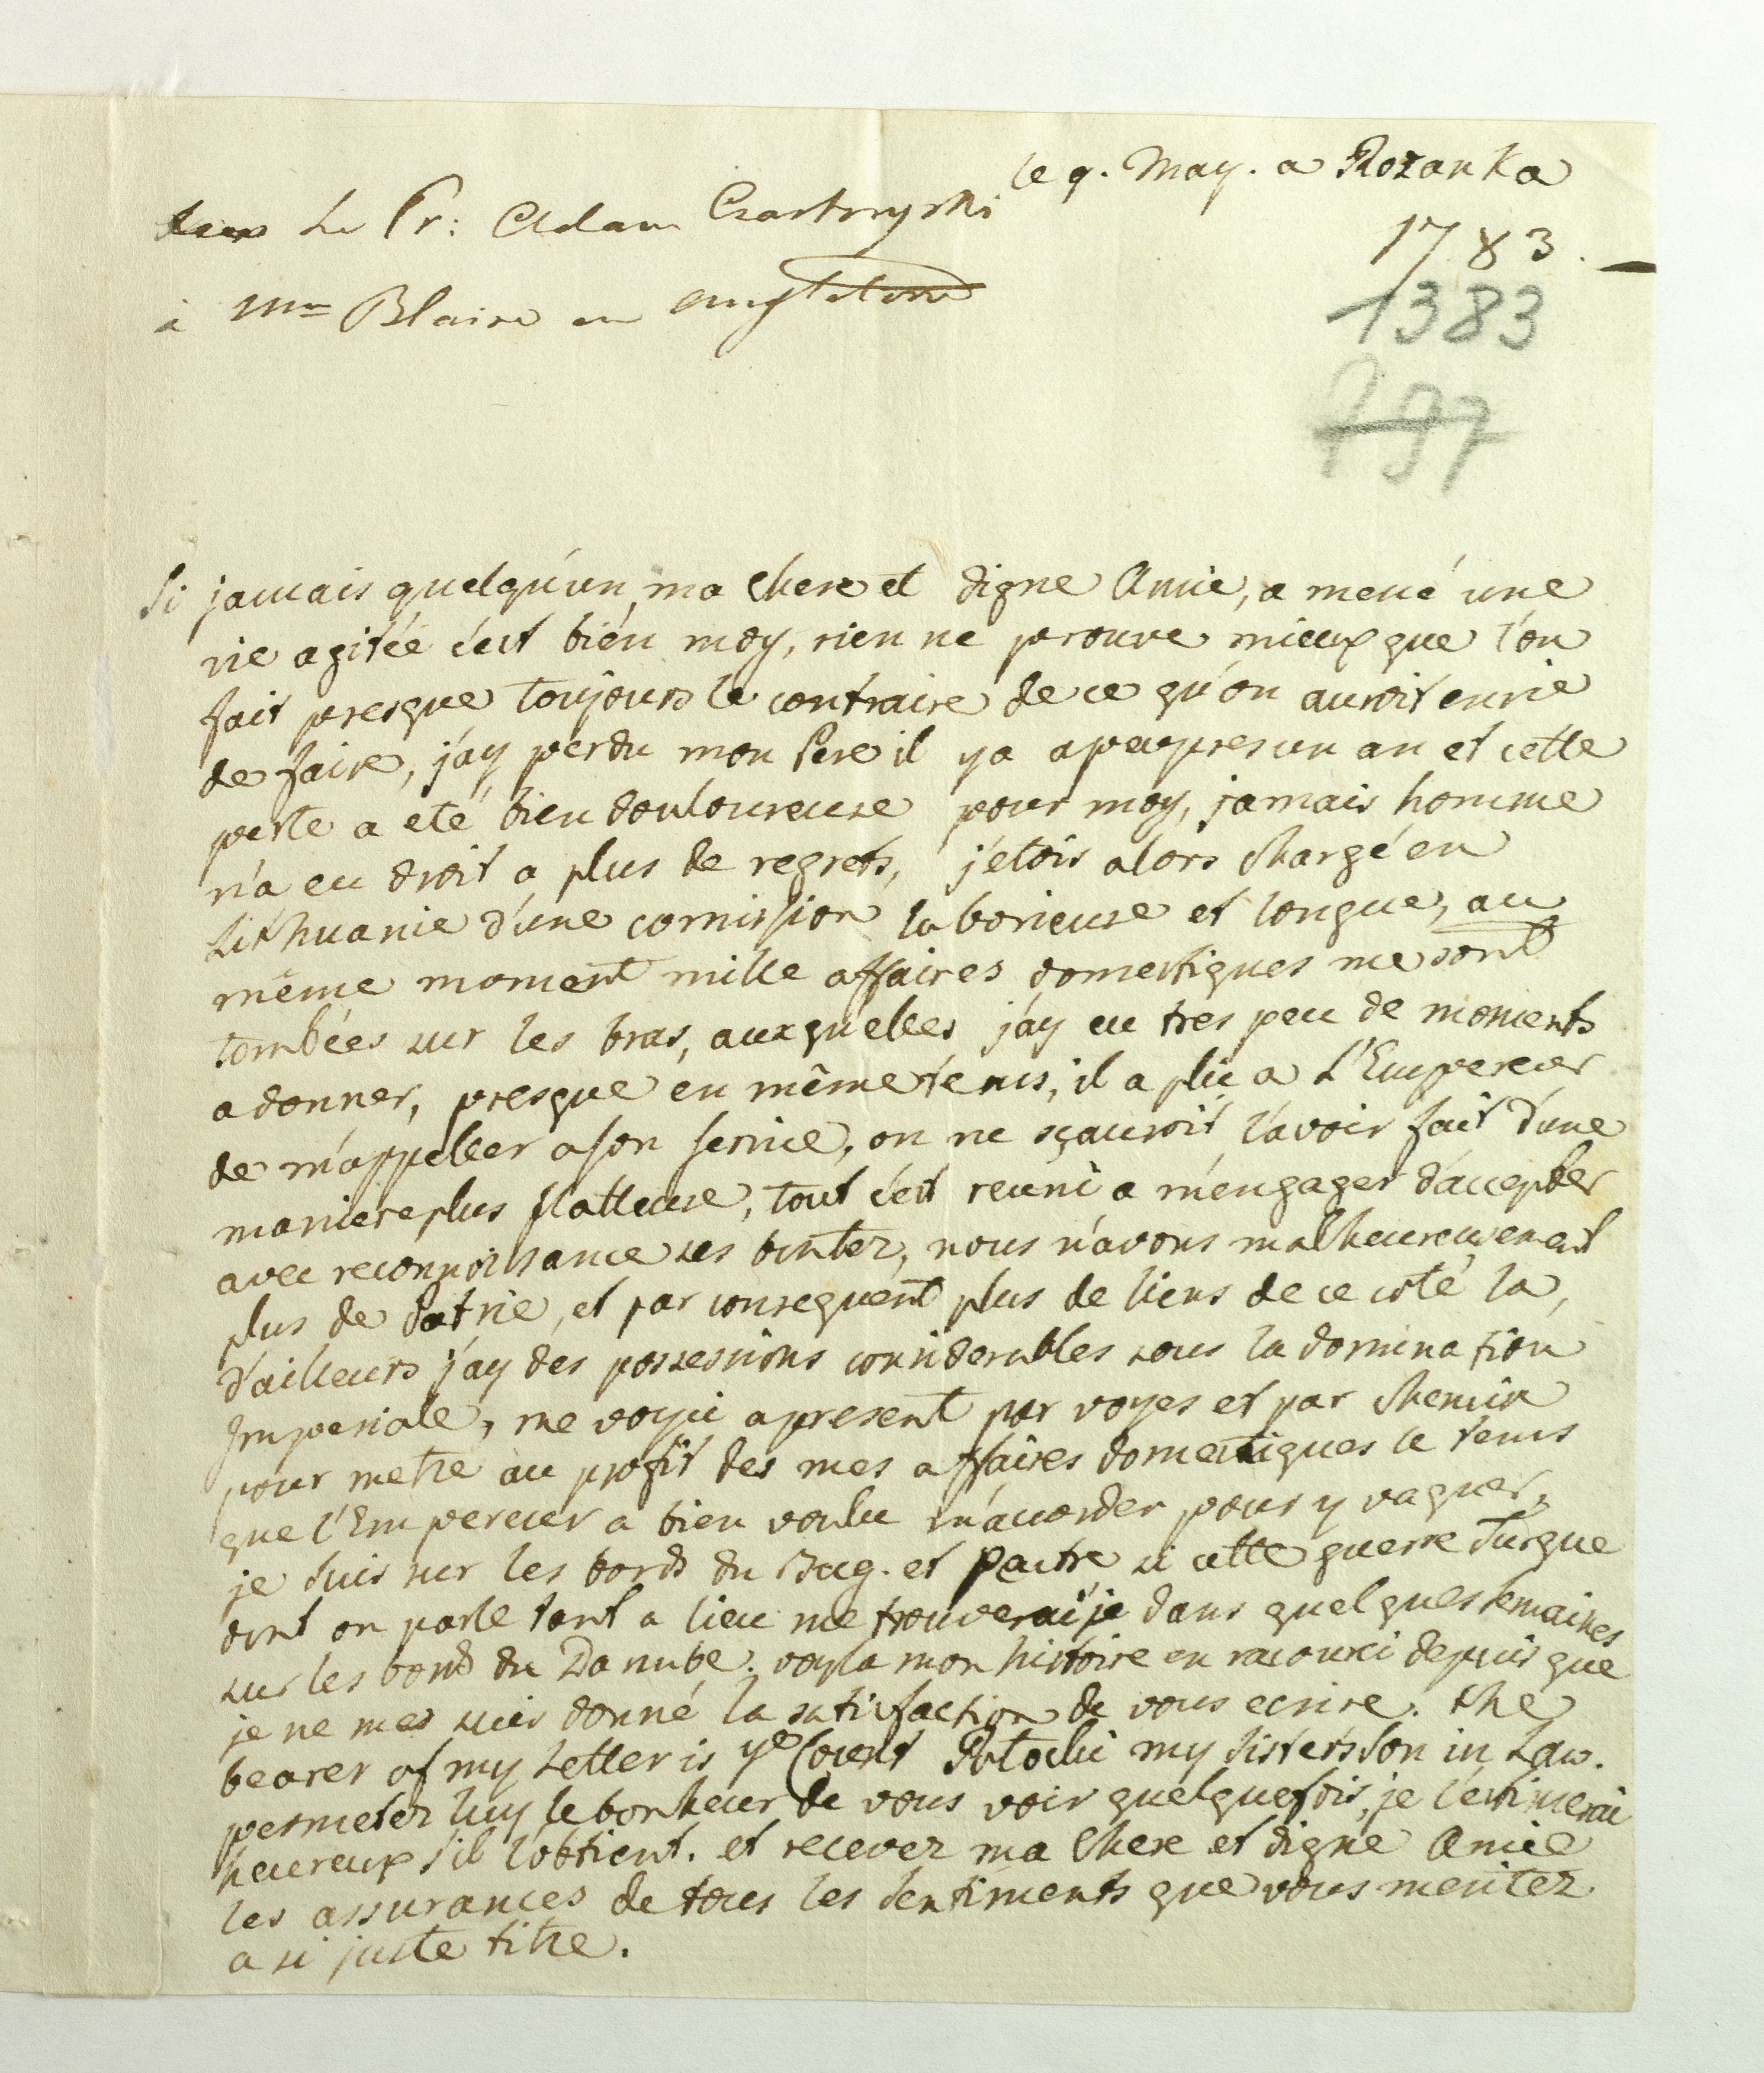 le 9. May. a Rozanka
Le Pr: Adam Czartoryski
1783.
à Mme Blaire en angleterre
1383
797
Si jamais quelqu'un, ma chere et digne Amie, a mené une
vie agitée c'est bien moy, rien ne prouve mieux que l'on
fait presque toujours le contraire de ce qu'on auroit envie
de faire, j'ay perdu mon Pere il ya apeupres un an et cette
perte a eté bien douloureuse pour moy, jamais homme
n'a eu droit a plus de regrets, j'etois alors chargé en
Lithuanie d'une comission laborieuse et longue, au
même moment mille affaires domestiques me sont
tombées sur les bras, auxquelles j'ay eu tres peu de moments
a donner, presque en même tems, il a plu a L'Empereur
de m'appeller a son service, on ne sçauroit l'avoir fait d'une
maniere plus flatteuse, tout s'est reuni a m'engager d'accepter
avec reconnoissance ses bontez, nous n'avons malheureusement
plus de Patrie, et par consequent plus de liens de ce coté la,
d'ailleurs j'ay des possessions considerables sous la domination
Imperiale, me voyci apresent par voyes et par chemin
pour metre au profit des mes affaires domestiques le tems
que l'Empereur a bien voulu m'accorder pour y vaquer,
je suis sur les bords du Bug. et peutre si cette guerre Turque
dont on parle tant a lieu me trouverai je dans quelques semaines
sur les bords du Danube. voyla mon histoire en racourci depuis que
je ne mes suis donné la satisfaction de vous ecrire. the
bearer of my Letter is ye Count Potocki my sisters son in Law.
permetez luy le bonheur de vous voir quelquefois, je l'estimerai
heureux s'il l'obtient. et recevez ma chere et digne Amie
les assurances de tous les sentiments que vous meritez
a si juste titre.